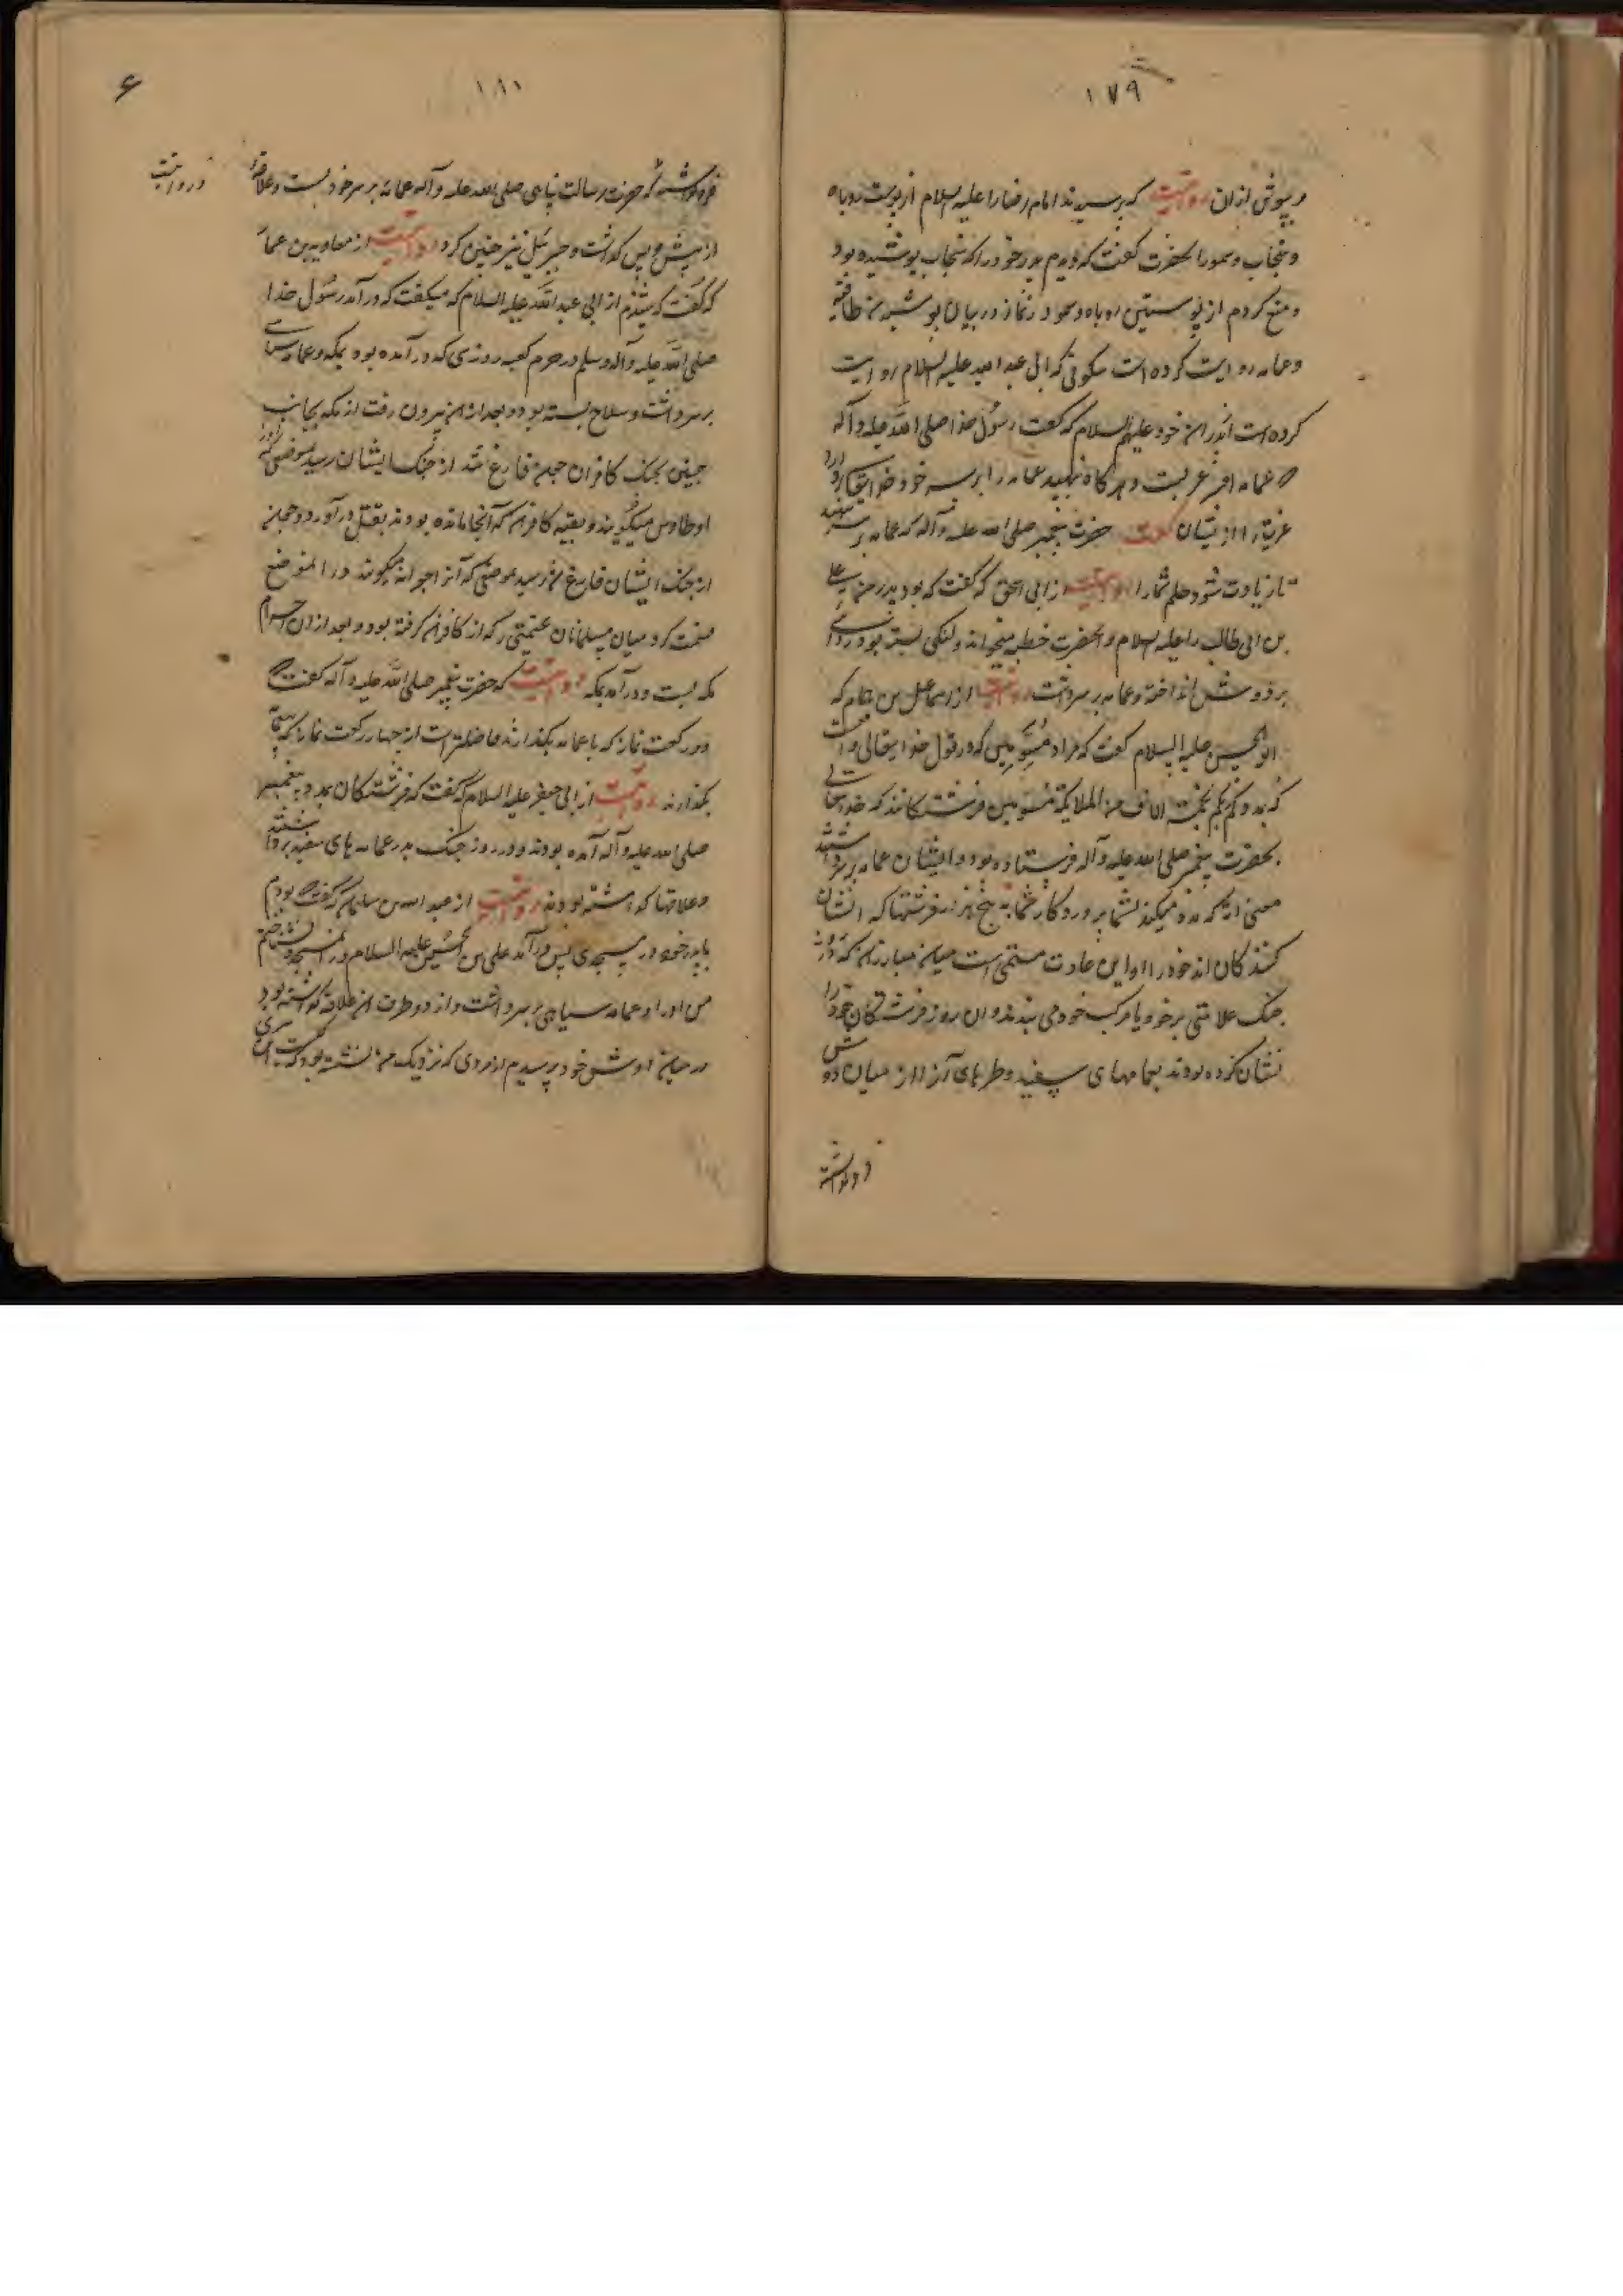 ۱۷۹
مپوش ازان روایتست که پرسیدند امام رضا را علیه السلام از پوست روباه
و سنجاب و سمور انحضرت گفت که دیدم پدر خود را که سنجاب پوشیده بود
و منع کردم از پوستین روباه و سمور در نماز در بیان پوشیدن طاقیه
و عمامه روایت کرده است سکونی که ابی عبد الله علیه السلام روایت
کرده است از پدران خود علیهم السلام که گفت رسول خدا صلی الله علیه و آله
که عمامه افسر عربست و هر گاه ننهید عمامه را بر سر خود خدایتعالی بردارد
عزت را از ایشان گفت حضرت پیغمبر صلی الله علیه و آله که عمامه بر سر نهید
تا زیادت شود حلم شما را روایتست از ابی اسحق که گفت که بود پدر حضرت علی
بن ابی طالب را علیه السلام و انحضرت خطبه میخواند و لنگی بسته بود و ردای
بر دوش انداخته و عمامه بر سر داشت روایتست از اسماعیل بن همام که
ابو الحسن علیه السلام گفت که مراد مسومین که در قول خدایتعالی واقعست
که یمددکم ربکم بخمسة الاف من الملایکة مسومین فرشتگانند که خدایتعالی
بحضرت پیغمبر صلی الله علیه و آله فرستاده بود و ایشان عمامه بر سر داشتند
معنی آیه که مدد میکند شما را پروردگار شما به پنج هزار فرشتها که نشان
کنندگان اند خود را و این عادت مستمری است میان مبارزان که روز
جنگ علامتی بر خود یا مرکب خود می بندند و ان روز فرشتگان خود را
نشان کرده بودند بعمامهای سفید و طرهای آنرا از میان دو دوش
فروگذاشته
۱۸۱
۶
فروگذاشته که حضرت رسالت پناهی صلی الله علیه و آله عمامه بر سر خود بست و علاقه
در روایتست
از پیش و پس گذاشت و جبرئیل نیز چنین کرد روایتست از معاویه بن عمار
که گفت که شنیدم از ابی عبد الله علیه السلام که میگفت که در آمد رسول خدا
صلی الله علیه و آله و سلم در حرم کعبه روزی که در آمده بود بمکه و عمامه سیاهی
بر سر داشت و سلاح بسته بود و بعد از ان بیرون رفت از مکه بجانب
حنین بجنک کافران چون فارغ شد از جنک ایشان رسید بموضعی که
اوطاوس میگویند و بقیه کافران که آنجا مانده بودند بقتل در آورد و چون
از جنک ایشان فارغ شد رسید بموضعی که آنرا جعرانه میگویند در انموضع
قسمت کرد میان مسلمانان غنیمتی را که از کافران گرفته بود و بعد از ان احرام
مکه بست و در آمد بمکه روایتست که حضرت پیغمبر صلی الله علیه و آله گفت که
دو رکعت نماز که با عمامه بگذارند فاضلتر است از چهار رکعت نماز که بی عمامه
بگذارند روایتست از ابی جعفر علیه السلام که گفت که فرشتگان بمدد پیغمبر
صلی الله علیه و آله آمده بودند و در روز جنگ بدر عمامه های سفید بر سر داشتند
و علاقها گذاشته بودند روایتست از عبد الله بن سلیمان که گفت بودم
با پدر خود در مسجدی پس در آمد علی بن الحسین علیه السلام در انمسجد و شناختم
من او را و عمامه سیاهی بر سر داشت و از دو طرف ان علاقه گذاشته بود
در میان دوش خود پرسیدم از مردی که نزدیک من نشسته بود که کیست این